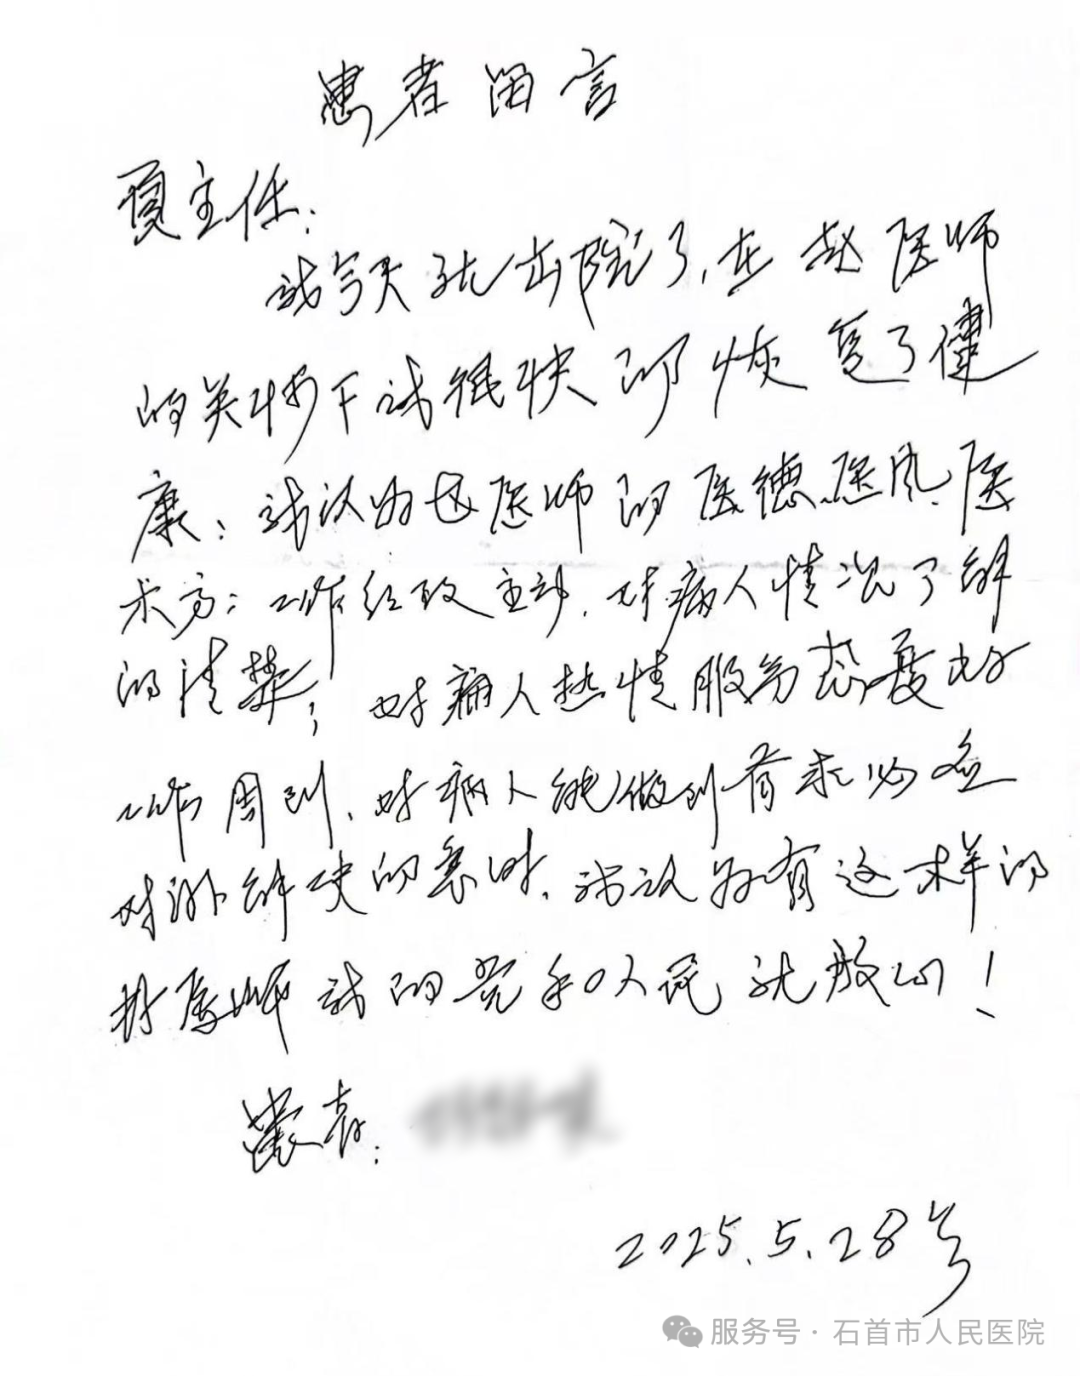 患者留言
夏主任：
我今天就出院了,在赵医师
的关怀下我很快的恢复了健
康：我认为赵医师的医德医风.医
术高：工作积极主动.对病人情况了解
的清楚；对病人热情服务态度好
工作周到.对病人能做到有求必应
对我解决的及时.我认为有这样的
好医师我的党和人民就放心！
患者：
2025.5.28号
服务号·石首市人民医院